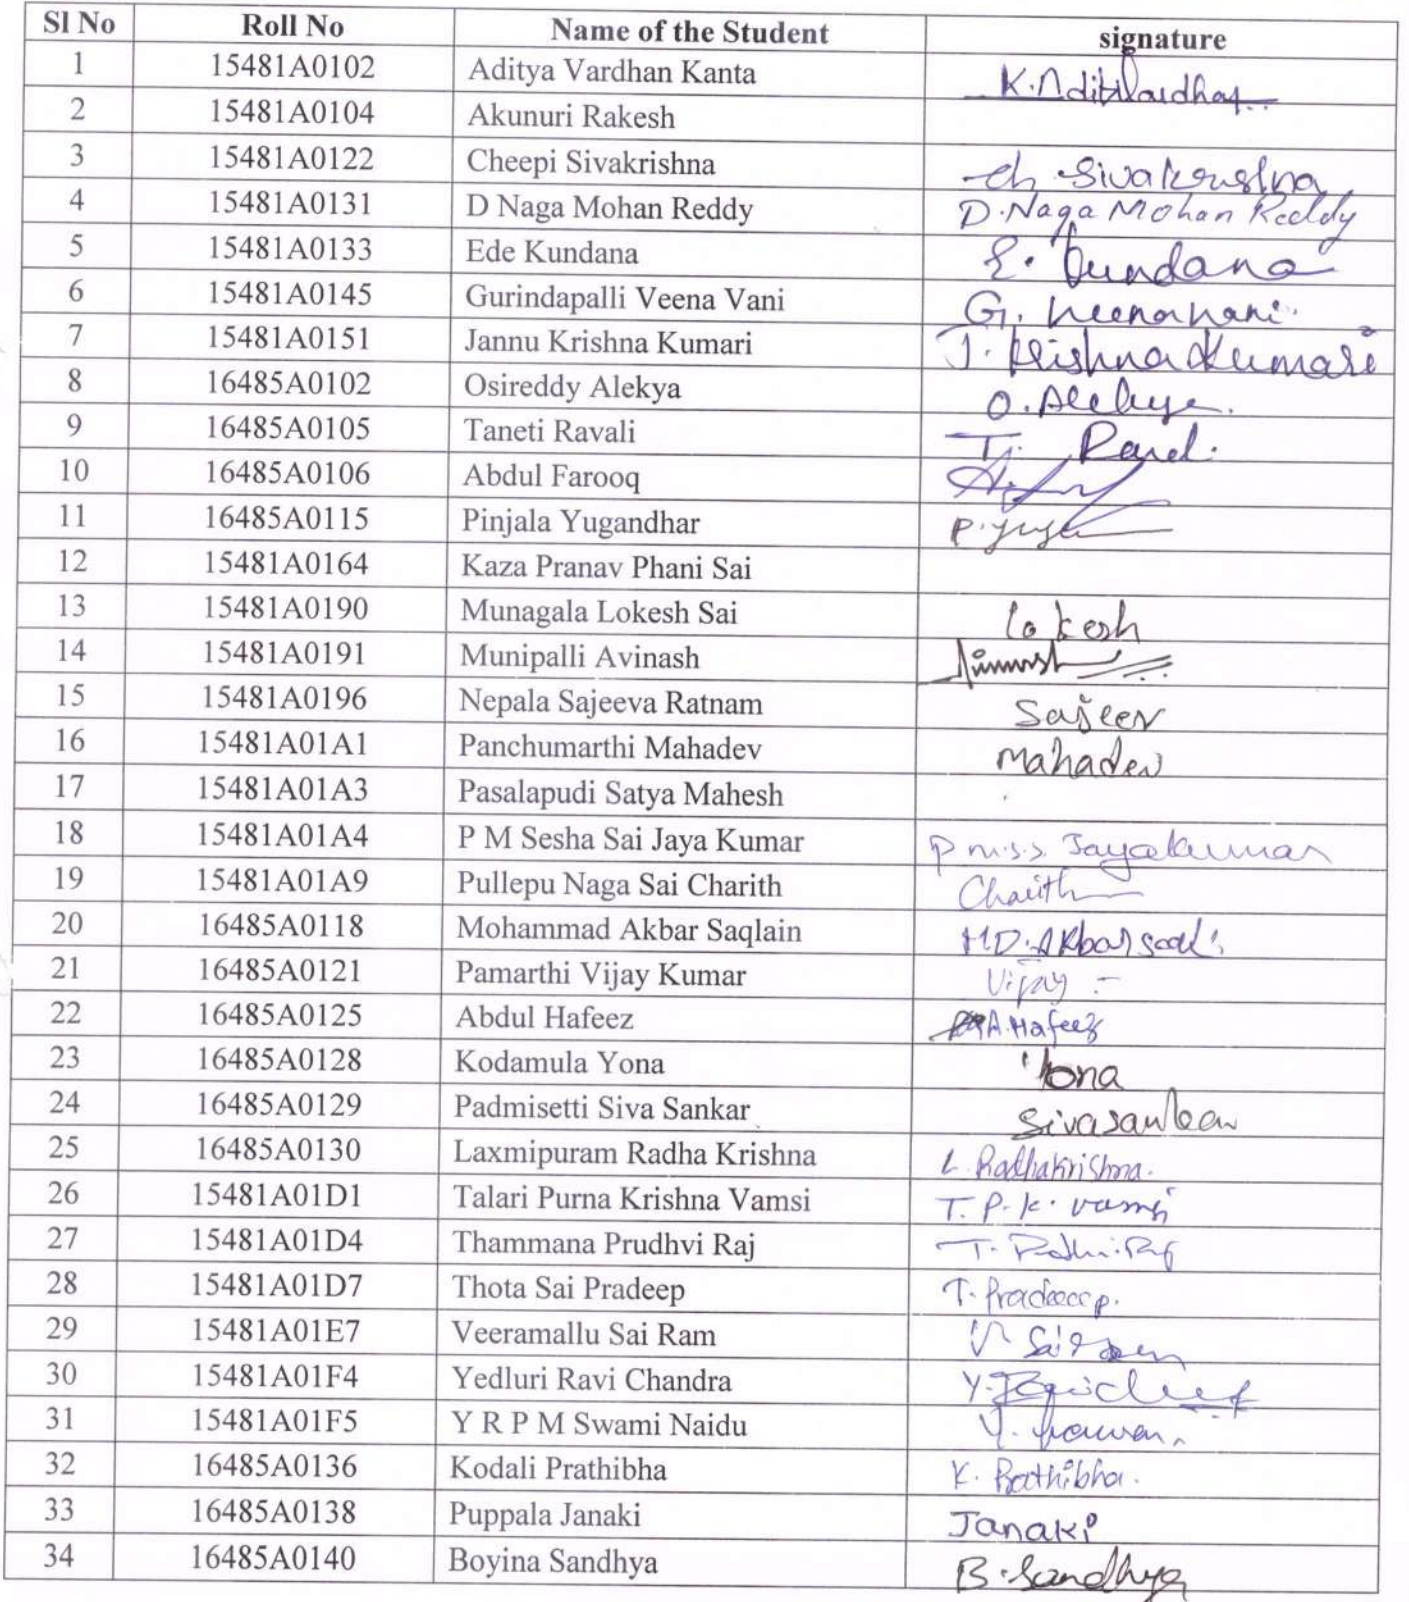 Sl No Roll No Name of the Student signature
1 15481A0102 Aditya Vardhan Kanta
2 15481A0104 Akunuri Rakesh
3 15481A0122 Cheepi Sivakrishna ch. Sivakrushna
4 15481A0131 D Naga Mohan Reddy D. Naga Mohan Reddy
5 15481A0133 Ede Kundana E. Kundana
6 15481A0145 Gurindapalli Veena Vani G. Veenavani.
7 15481A0151 Jannu Krishna Kumari J. Krishna Kumari
8 16485A0102 Osireddy Alekya O. Alekya.
9 16485A0105 Taneti Ravali T.
10 16485A0106 Abdul Farooq
11 16485A0115 Pinjala Yugandhar
12 15481A0164 Kaza Pranav Phani Sai
13 15481A0190 Munagala Lokesh Sai Lokesh
14 15481A0191 Munipalli Avinash
15 15481A0196 Nepala Sajeeva Ratnam Sajeev
16 15481A01A1 Panchumarthi Mahadev Mahadev
17 15481A01A3 Pasalapudi Satya Mahesh
18 15481A01A4 P M Sesha Sai Jaya Kumar P m.s.s. Jayakumar
19 15481A01A9 Pullepu Naga Sai Charith Charith
20 16485A0118 Mohammad Akbar Saqlain MD. Akbar
21 16485A0121 Pamarthi Vijay Kumar Vijay
22 16485A0125 Abdul Hafeez A. Hafeez
23 16485A0128 Kodamula Yona Yona
24 16485A0129 Padmisetti Siva Sankar Sivasankar
25 16485A0130 Laxmipuram Radha Krishna L. Radhakrishna.
26 15481A01D1 Talari Purna Krishna Vamsi T. P. K. Vamsi
27 15481A01D4 Thammana Prudhvi Raj T.
28 15481A01D7 Thota Sai Pradeep T. Pradeep.
29 15481A01E7 Veeramallu Sai Ram V Sai
30 15481A01F4 Yedluri Ravi Chandra Y.
31 15481A01F5 Y R P M Swami Naidu Y.
32 16485A0136 Kodali Prathibha K. Prathibha.
33 16485A0138 Puppala Janaki Janaki
34 16485A0140 Boyina Sandhya B. Sandhya